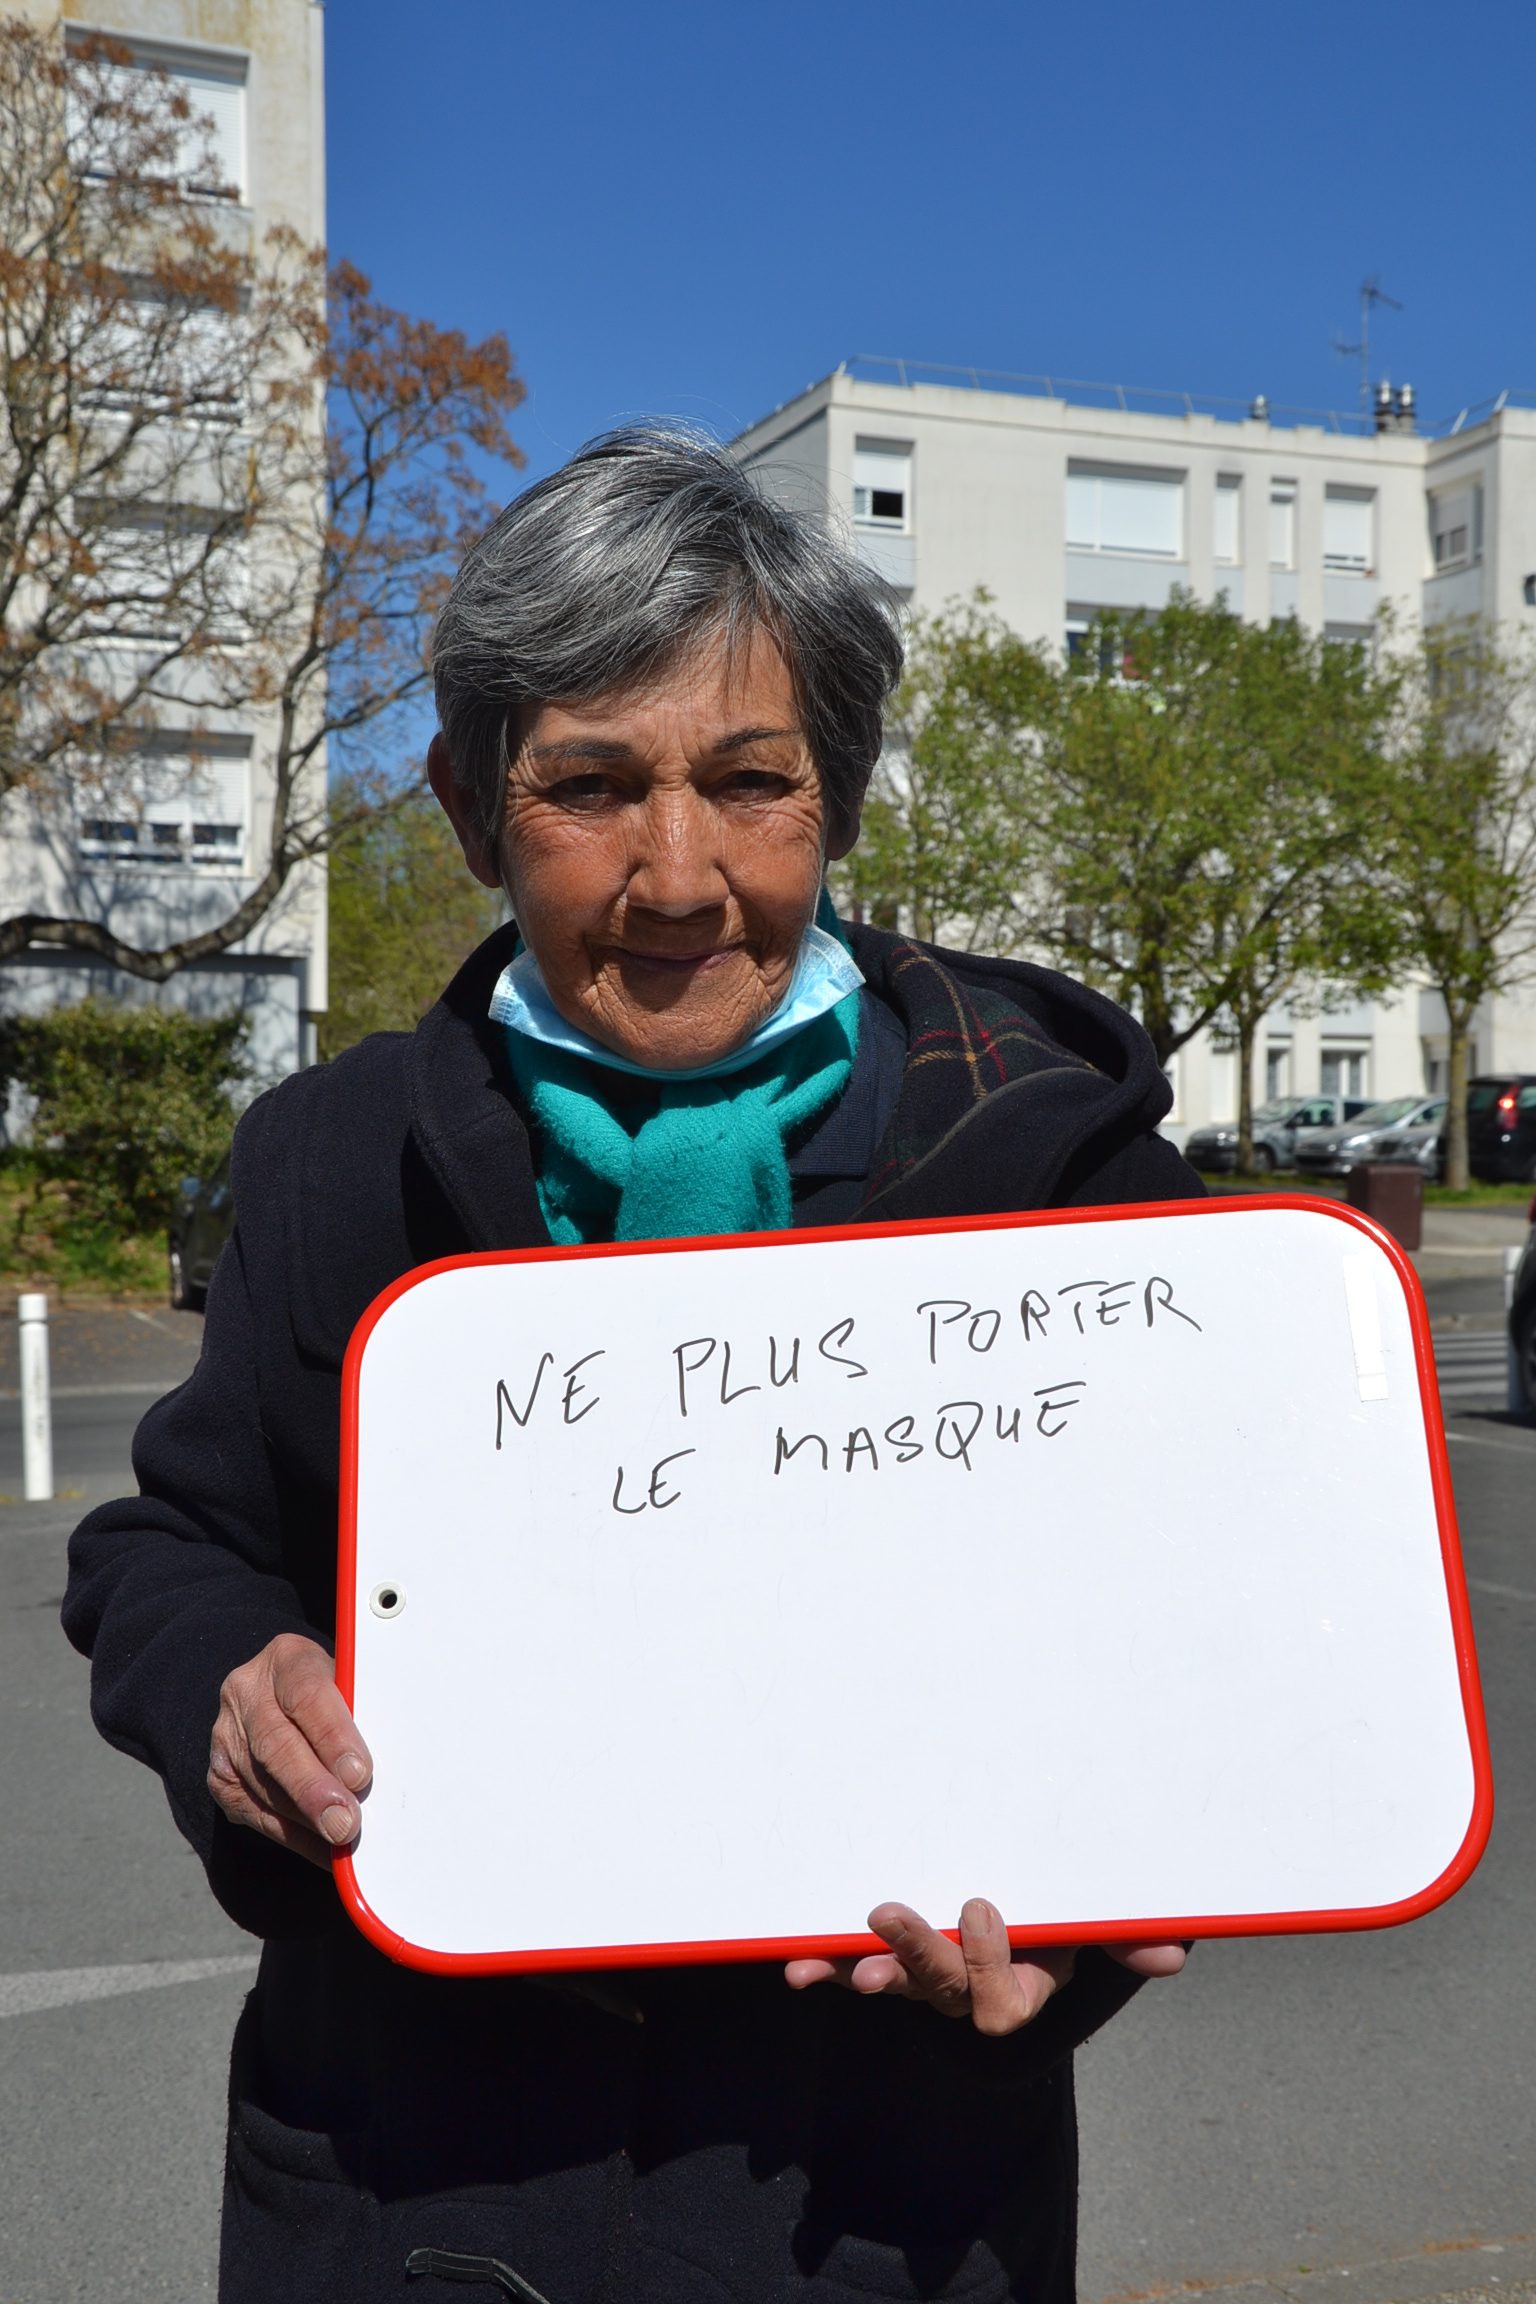 NE PLUS PORTER
LE MASQUE